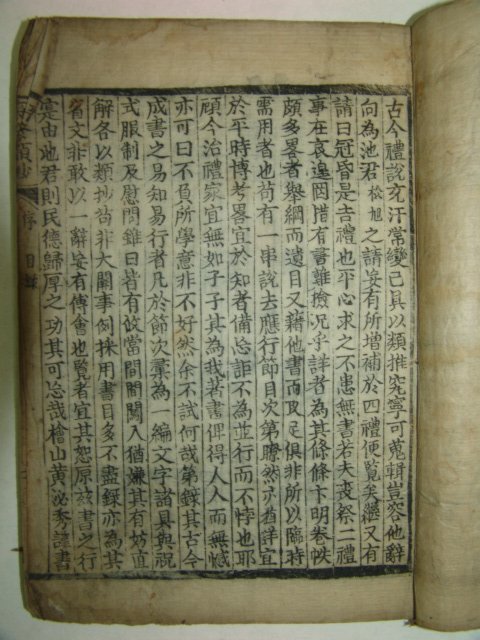 古今禮說充汗常變已具以類推究寧可蒐輯豈容他辭
向為池君松旭之請妄有所增補於四禮便覽矣繼又有
請曰冠昏是吉禮也平心求之不患無書若夫喪祭二禮
事在哀遑固措有書難撿況乎詳者為其條條卞明卷帙
頗多畧者舉綱而遺目又藉他書而取足俱非所以臨時
需用者也苟有一串說去應行節目次第瞭然亦詳宜
於平時博考畧宜於知者備忘詎不為並行而不悖也耶
顧今治禮家宜無如子子其為我著書俾得人人而無憾
亦可曰不負所學意非不好然余不試何哉第錄其古今
成書之易知易行者凡於節次彙為一編文字諸具與祝
式服制及慰問錐曰皆有攷當間間闖入猶嫌其有妨直
解各以類抄苟非大關事例採用書目多不盡錄亦為其
省文非敢以一辭妄有傅會也覽者宜其恕原玆書之行
寔由池君則民德歸厚之功其可忘哉檜山黃泌秀謹書
序 目錄